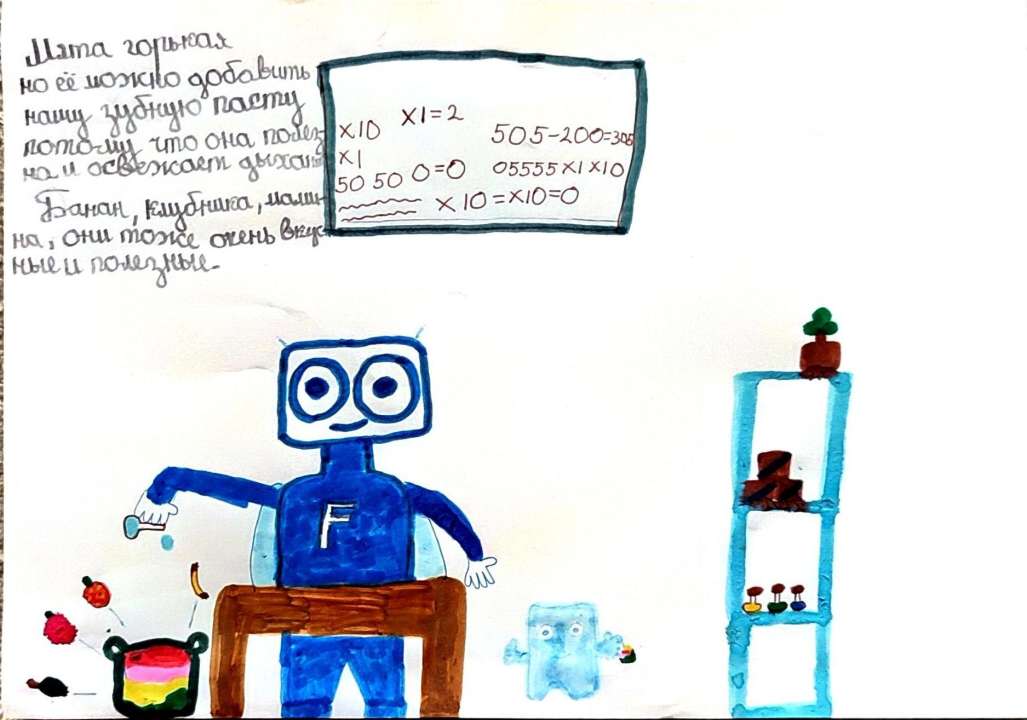 Мята горькая
но её можно добавить
нашу зубную пасту
потому что она полез-
на и освежает дыхан
Банан, клубника, мали-
на, они тоже очень вкус-
ные и полезные.
x10 x1=2 505-200=305
x1
50 50 0=0 05555x1x10
x10=x10=0
F